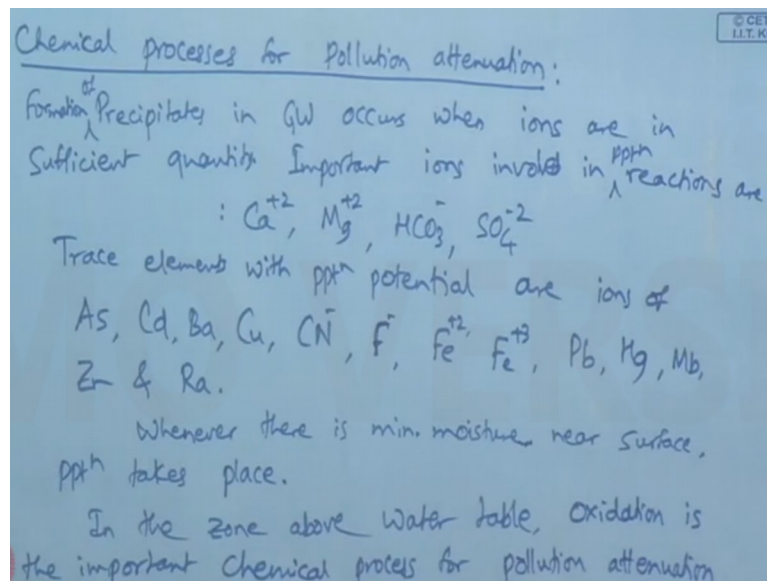 © CET
I.I.T. K
Chemical processes for Pollution attenuation:
Formation of Precipitates in GW occurs when ions are in
Sufficient quantity. Important ions involved in pptn reactions are
: Ca+2, Mg+2, HCO3-, SO4-2
Trace elements with pptn potential are ions of
As, Cd, Ba, Cu, CN-, F-, Fe+2, Fe+3, Pb, Hg, Mb,
Zn & Ra.
Whenever there is min. moisture near surface,
pptn takes place.
In the zone above water table, oxidation is
the important chemical process for pollution attenuation